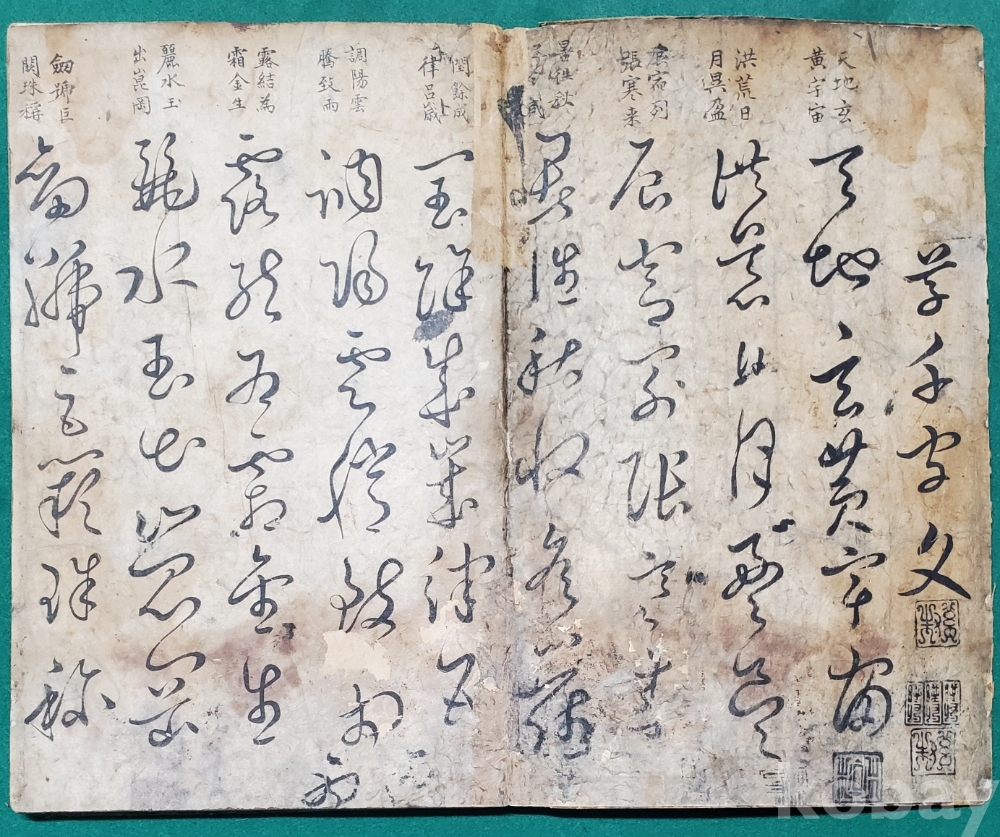 草千字文
天地玄
黃宇宙
天地玄黃宇宙
洪荒日
月盈
洪荒日月盈昃
辰宿列
張寒来
辰宿列張寒来
暑往秋
藏
暑往秋收冬藏
閏餘成
律呂歲
閏餘成歲律呂
調陽雲
騰致雨
調陽雲騰致雨
露結為
霜金生
露結為霜金生
麗水玉
出崑岡
麗水玉出崑岡
劒號巨
闕珠稱
劒號巨闕珠稱
kobay